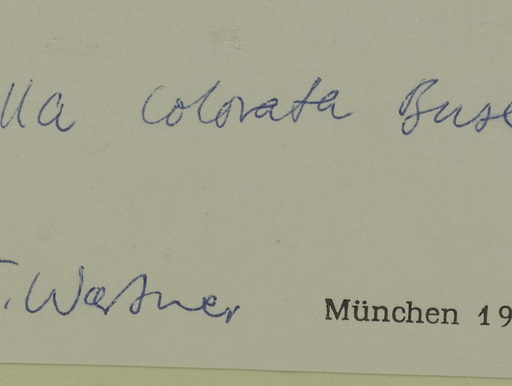 lla colorata Buse
F. Wartner
München 19